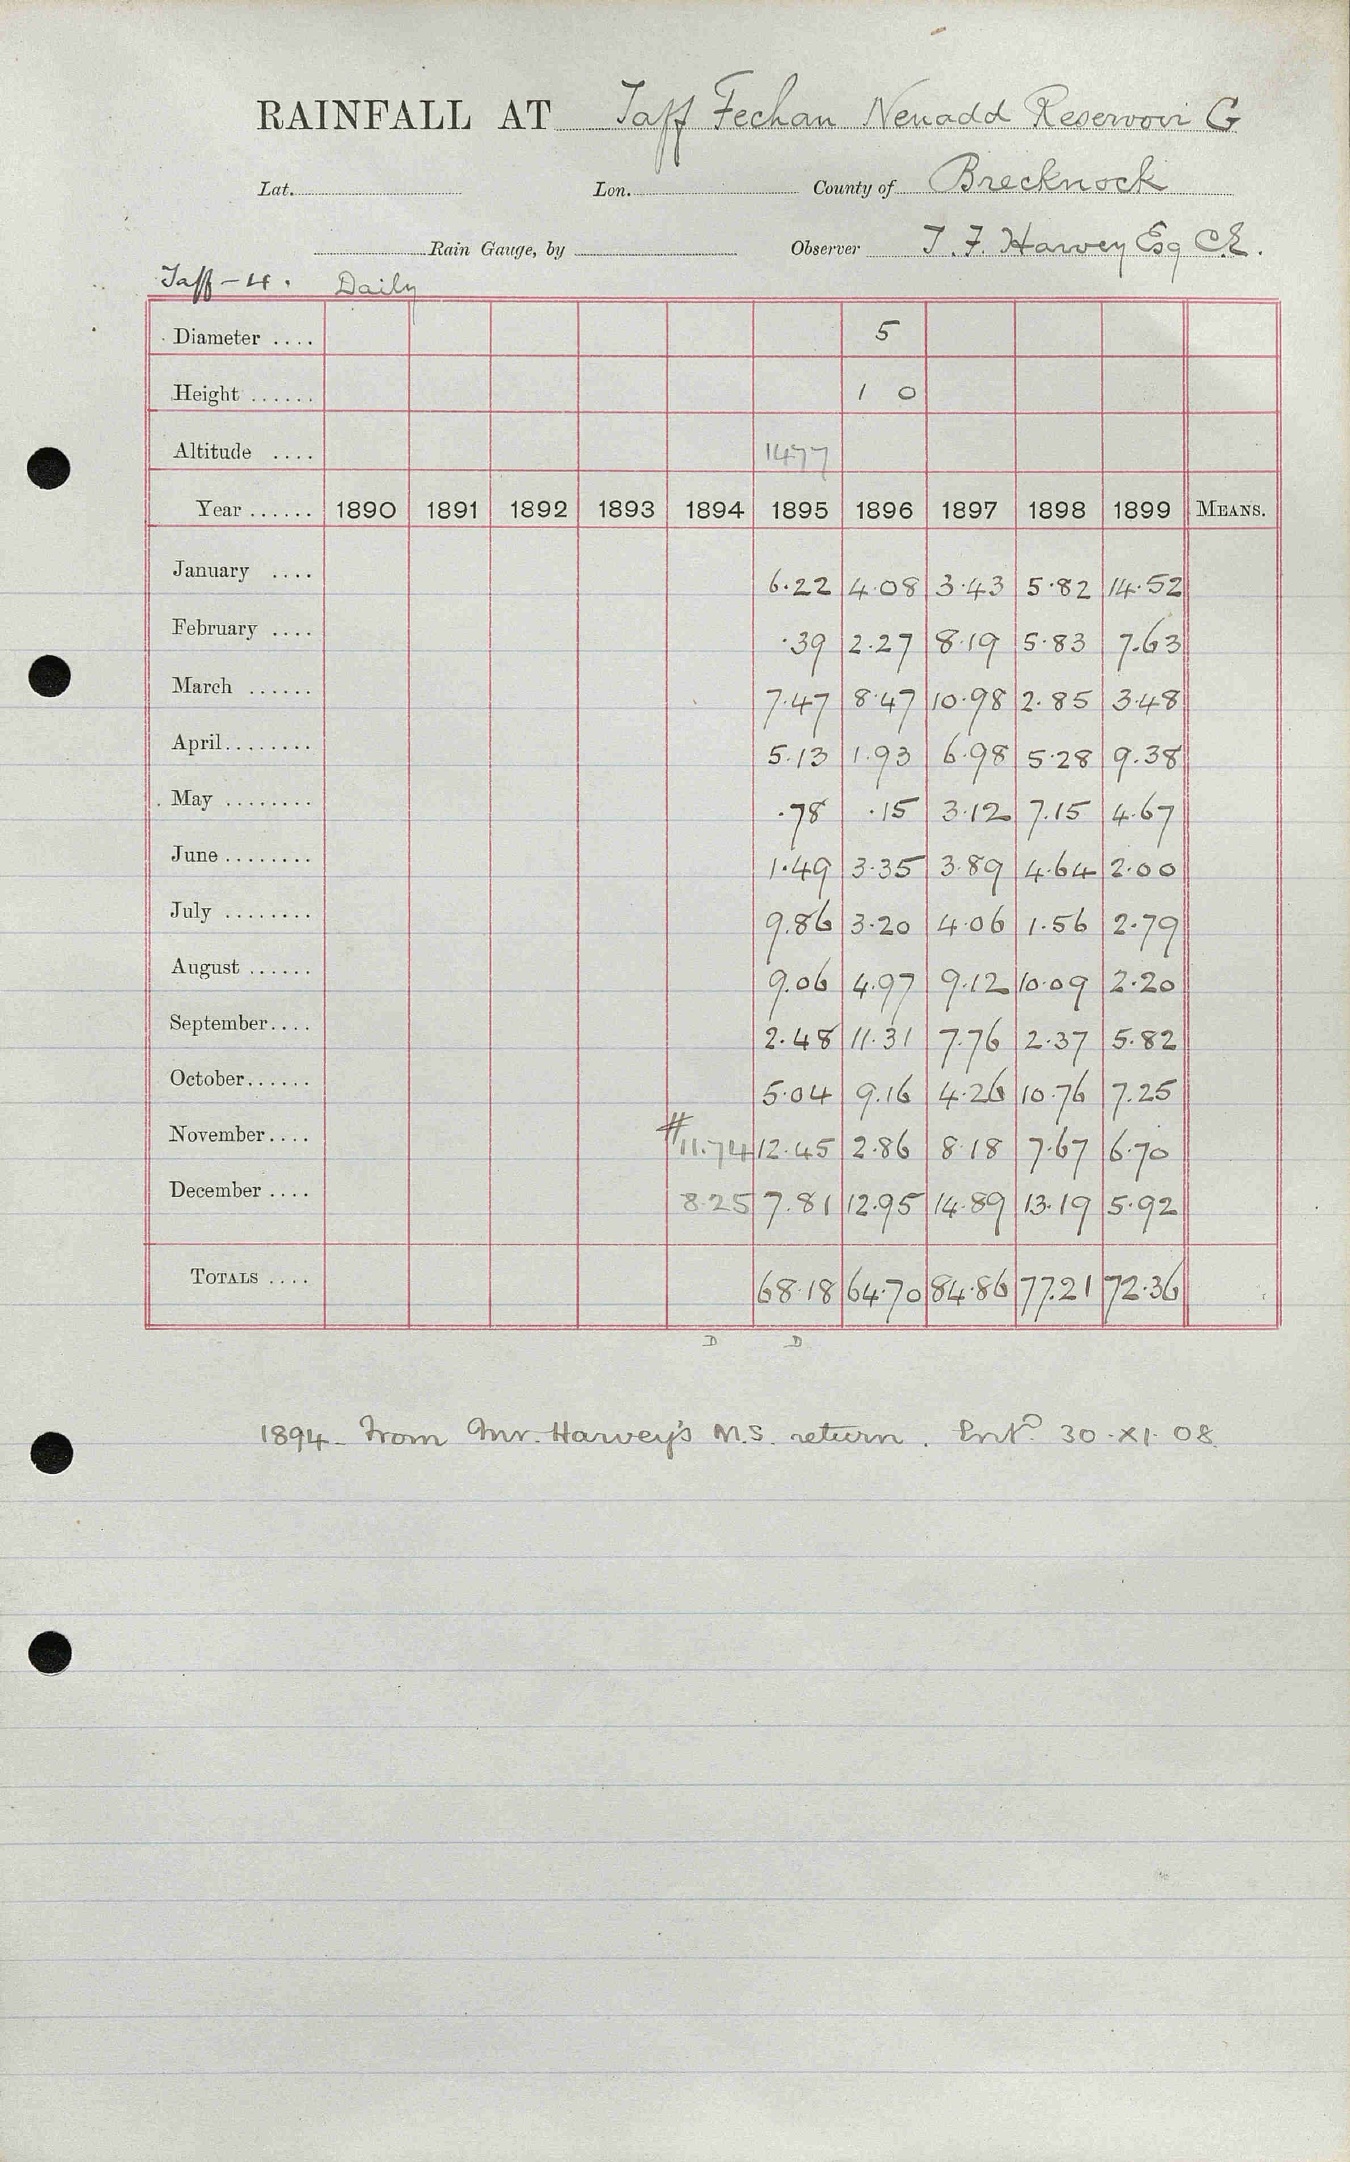 RAINFALL AT Taff Fechan Neuadd Reservoir G
Lat. Lon. County of Brecknock
Rain Gauge, by Observer T. F. Harvey Esq C.E.
Taff - 4. Daily
Diameter .... 5
Height ...... 1 0
Altitude .... 1477
Year ...... 1890 1891 1892 1893 1894 1895 1896 1897 1898 1899 MEANS.
January .... 6.22 4.08 3.43 5.82 14.52
February .... .39 2.27 8.19 5.83 7.63
March ...... 7.47 8.47 10.98 2.85 3.48
April........ 5.13 1.93 6.98 5.28 9.38
May ........ .78 .15 3.12 7.15 4.67
June ........ 1.49 3.35 3.89 4.64 2.00
July ........ 9.86 3.20 4.06 1.56 2.79
August ...... 9.06 4.97 9.12 10.09 2.20
September.... 2.48 11.31 7.76 2.37 5.82
October...... 5.04 9.16 4.26 10.76 7.25
November.... #11.74 12.45 2.86 8.18 7.67 6.70
December .... 8.25 7.81 12.95 14.89 13.19 5.92
TOTALS .... 68.18 64.70 84.86 77.21 72.36
D D
1894 - From Mr. Harvey's M.S. return. Entd 30.XI.08